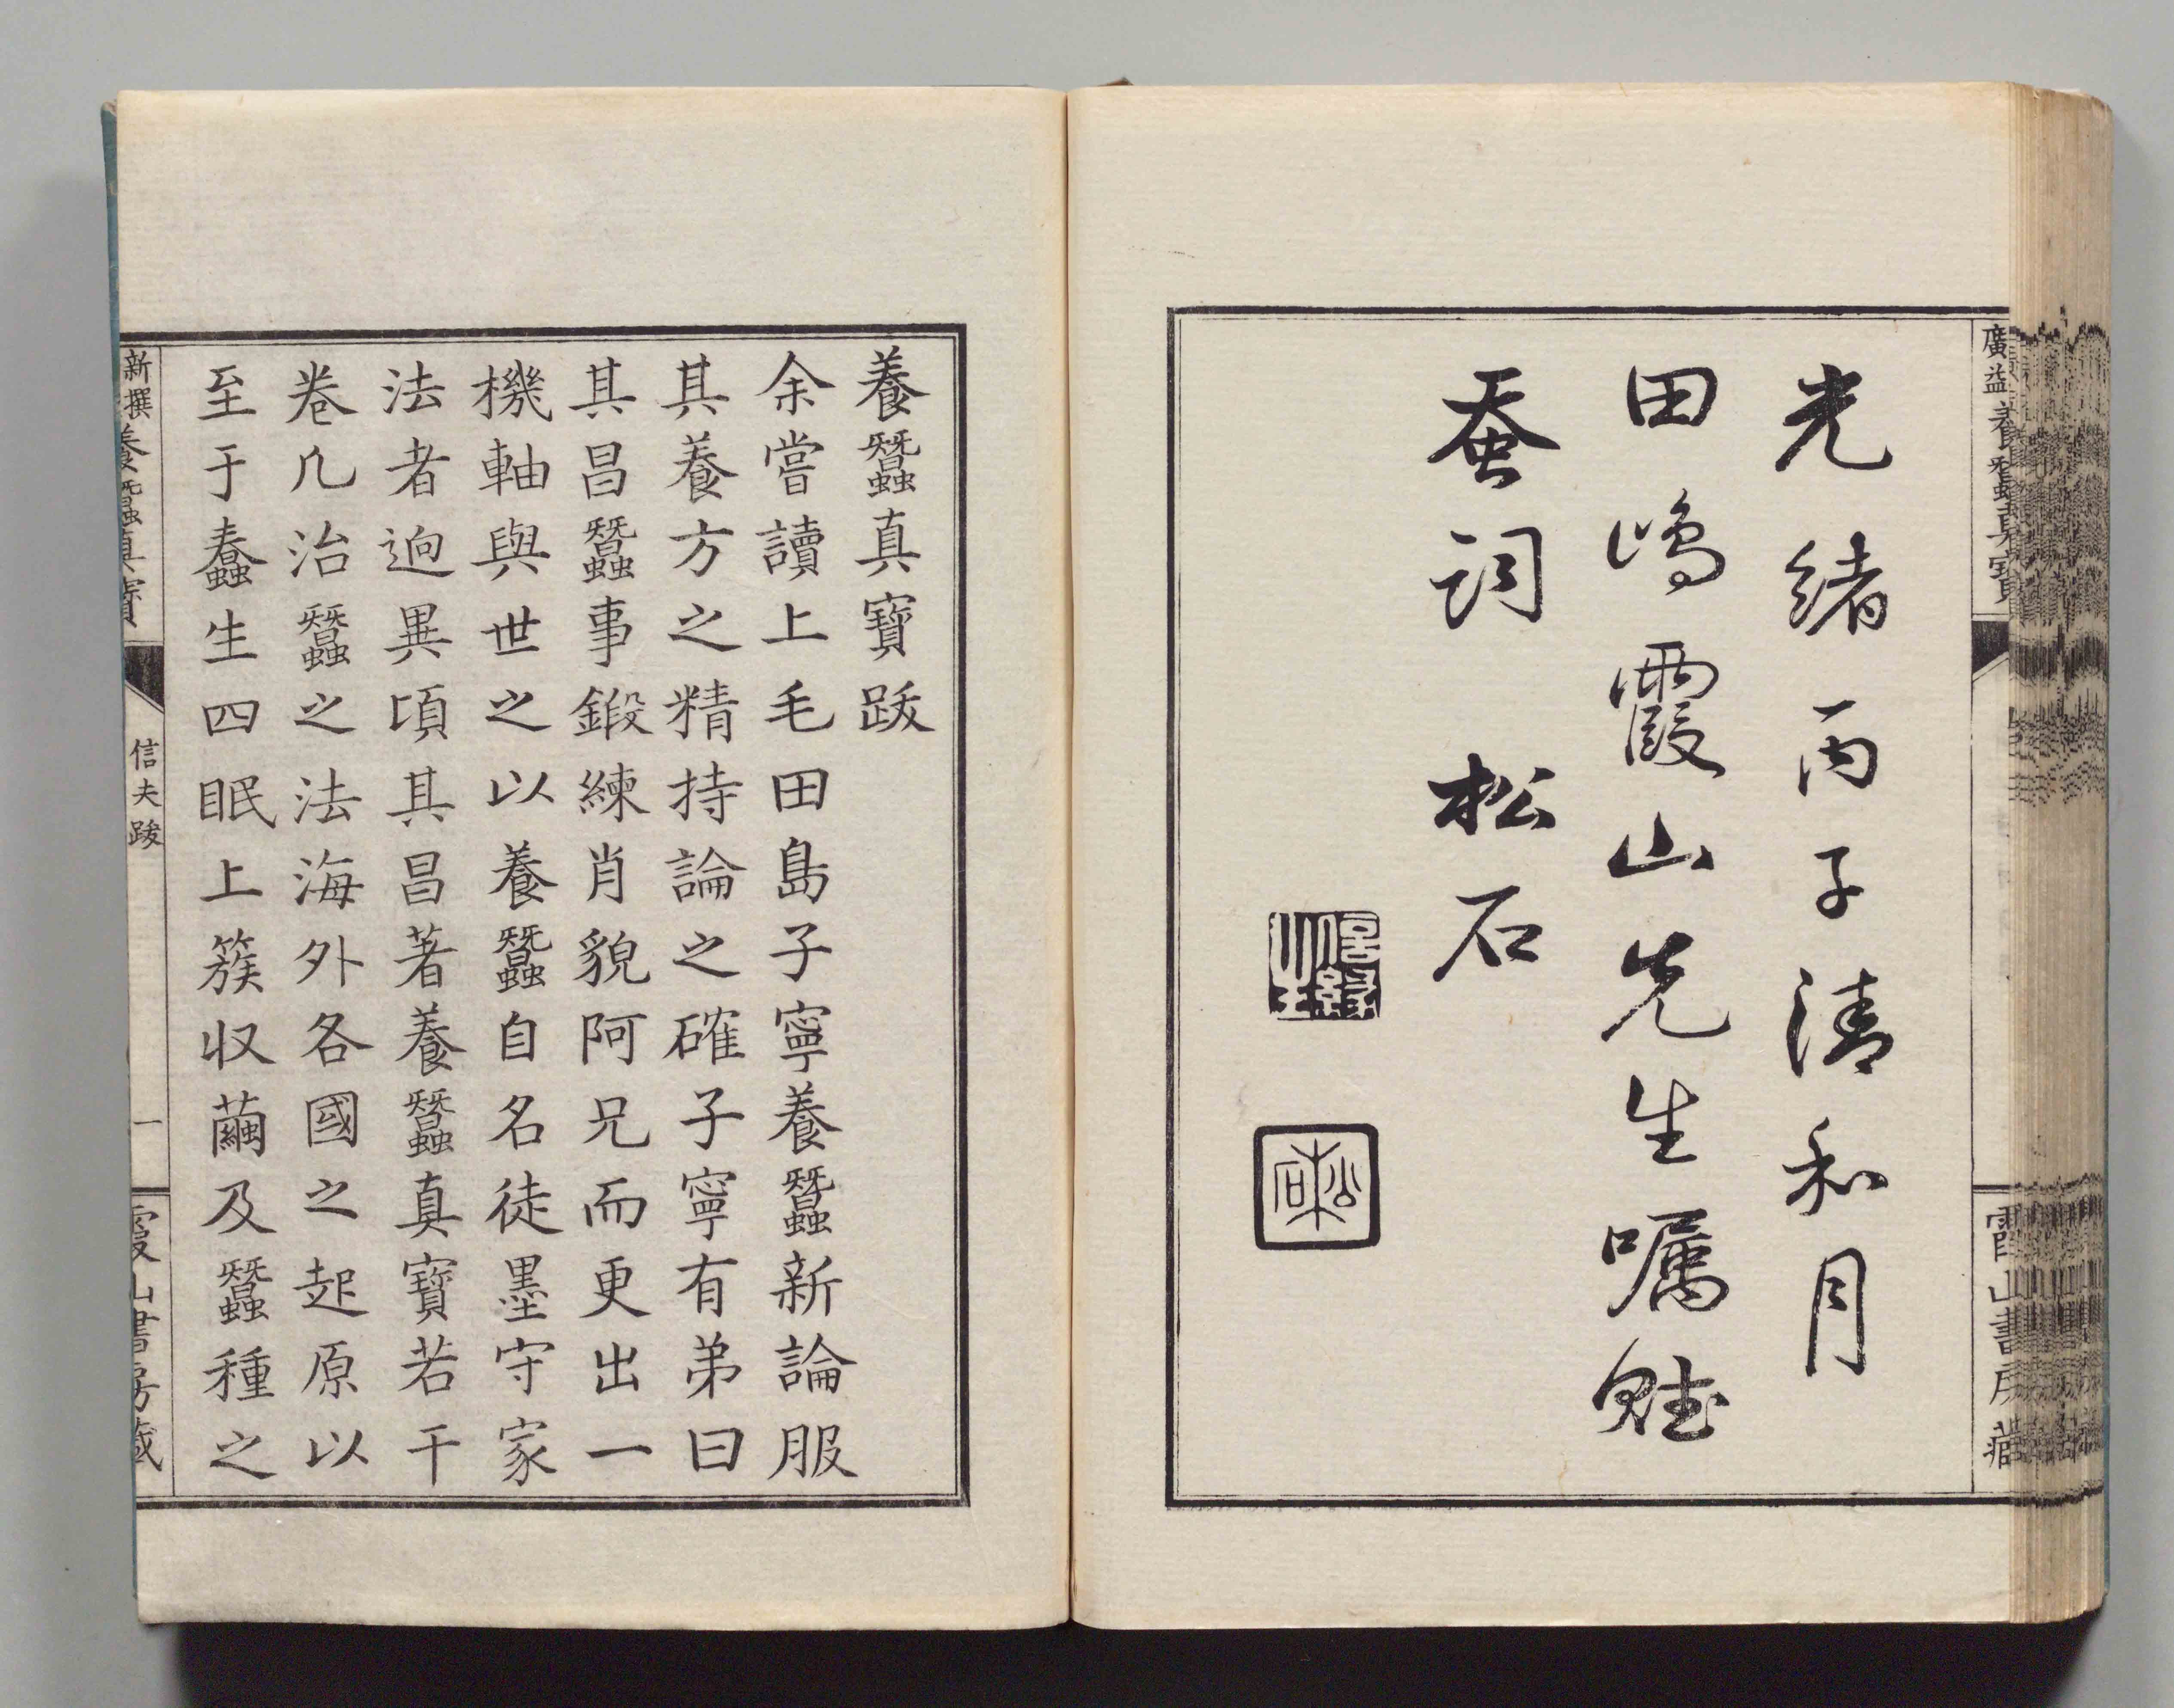 廣益養蠶真寶
霞山書房藏
光緒丙子清和月
田嶋霞山先生囑題
蚕詞 松石
松石
養蠶真寶跋
余嘗讀上毛田島子寧養蠶新論服
其養方之精持論之確子寧有弟曰
其昌蠶事鍛練肖貌阿兄而更出一
機軸與世之以養蠶自名徒墨守家
法者逈異頃其昌著養蠶真寶若干
卷凡治蠶之法海外各國之起原以
至于蠢生四眠上簇収繭及蠶種之
新撰養蠶真寶
信夫跋
一
霞山書房藏